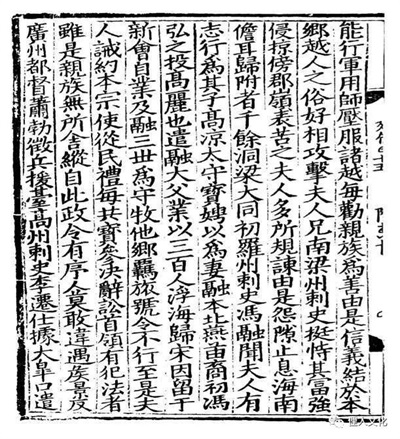 能行軍用師壓服諸越每勸親族為善由是信義結於本
鄉越人之俗好相攻擊夫人兄南梁州刺史挺恃其富強
侵掠傍郡嶺表苦之夫人多所規諫由是怨隙止息海南
儋耳歸附者千餘洞梁大同初羅州刺史馮融聞夫人有
志行為其子高涼太守寶娉以為妻融本北燕苗裔初馮
弘之投高麗也遣融大父業以三百人浮海歸宋因留于
新會自業及融三世為守牧他鄉羈旅號令不行至是夫
人誡約本宗使從民禮每共寶參決辭訟首領有犯法者
雖是親族無所舍縱自此政令有序人莫敢違遇侯景反
廣州都督蕭勃徵兵援臺高州刺史李遷仕據大皐口遣
俚人文化